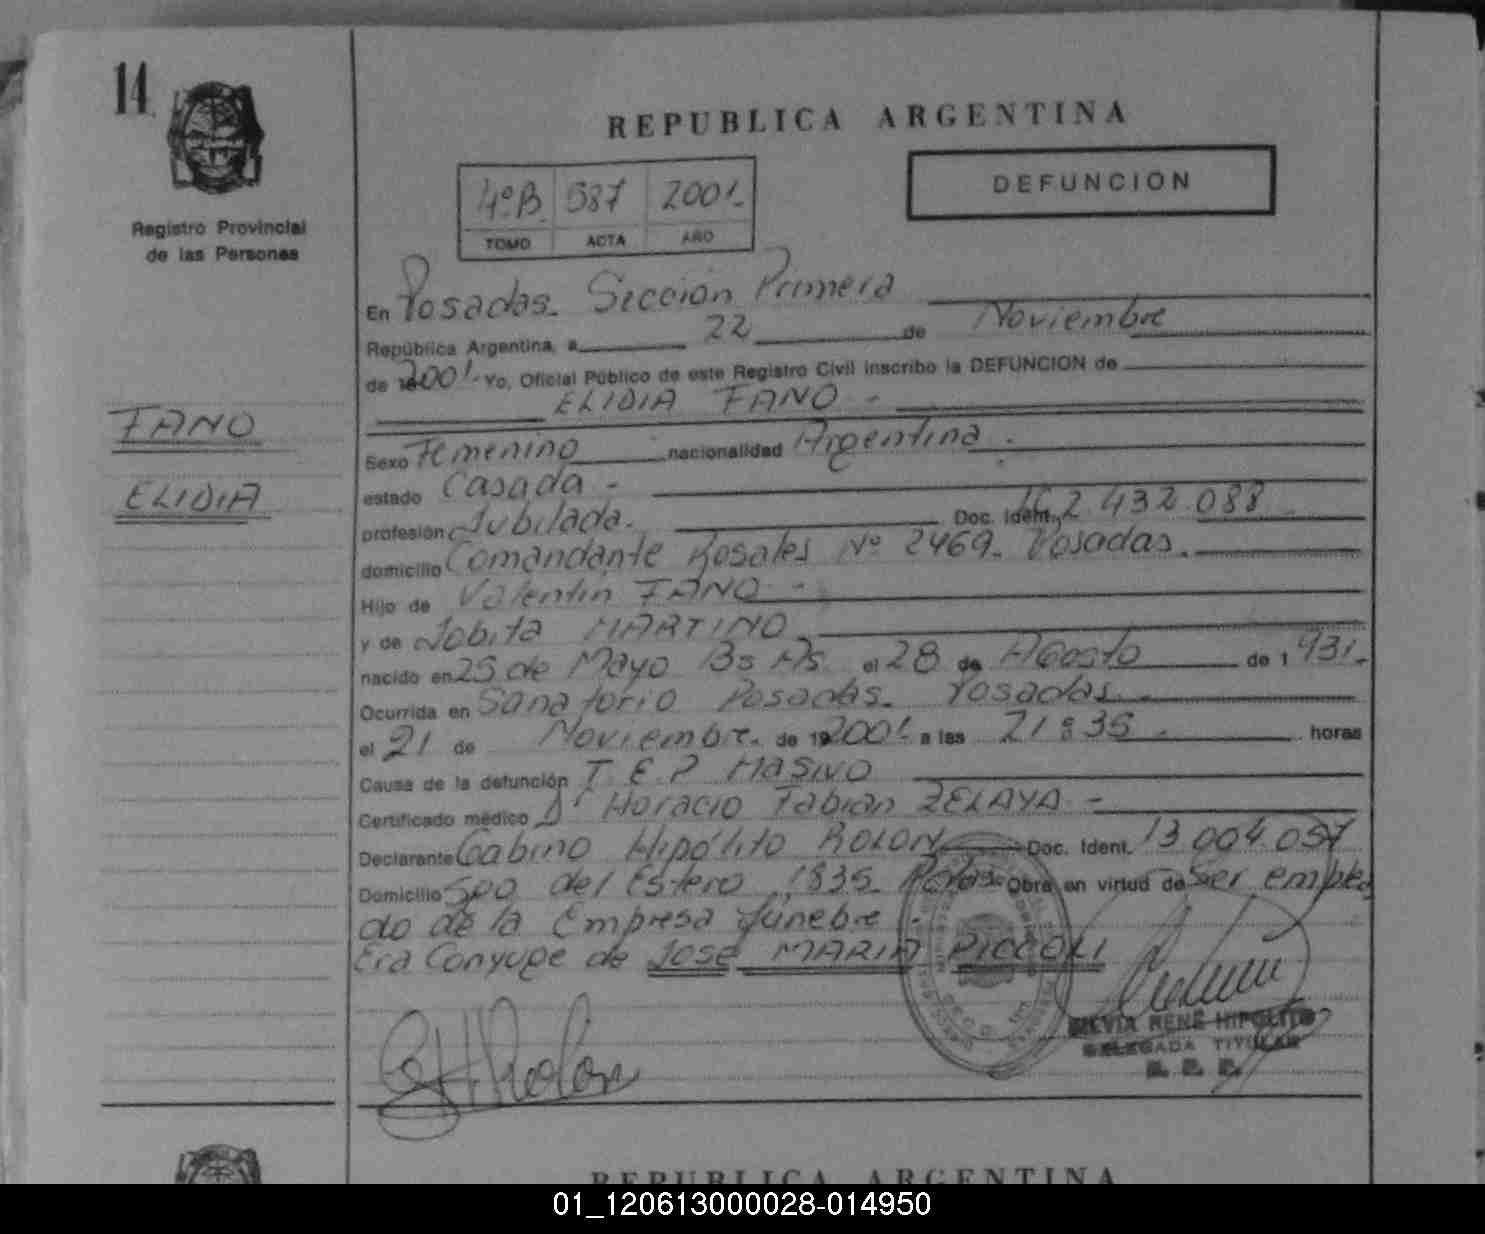 14
Registro Provincial
de las Personas
REPUBLICA ARGENTINA
DEFUNCION
4º B 587 2001
TOMO ACTA AÑO
En Posadas. Sección Primera
República Argentina, a 22 de Noviembre
de 2001. Yo, Oficial Público de este Registro Civil inscribo la DEFUNCION de
ELIDIA FANO.-
FANO
ELIDIA
Sexo Femenino nacionalidad Argentina.
estado Casada -
profesión Jubilada. Doc. Ident. LC 2.432.088
domicilio Comandante Rosales Nº 2469. Posadas.
Hijo de Valentin FANO -
y de Jobita MARTINO
nacido en 25 de Mayo Bs As. el 28 de Agosto de 1931.
Ocurrida en Sanatorio Posadas. Posadas
el 21 de Noviembre. de 2001 a las 21:35. horas
Causa de la defunción T. E. P MASIVO
Certificado médico Dr Horacio Fabian ZELAYA -
Declarante Gabino Hipólito ROLON Doc. Ident. 13.004.057
Domicilio Sgo del Estero 1835. Pdas Obra en virtud de Ser emplea
do de la Empresa fúnebre.
Era Conyuge de JOSE MARIA PICCOLI
SILVIA RENE HIPOLITO
DELEGADA TITULAR
REPUBLICA ARGENTINA
01_120613000028-014950